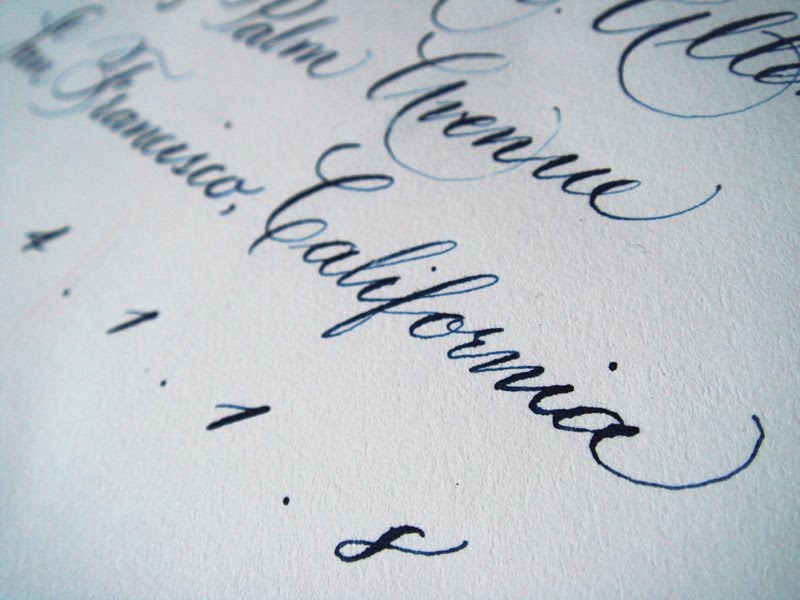 Palm Avenue
San Francisco, California
4 . 1 . 1 . 8